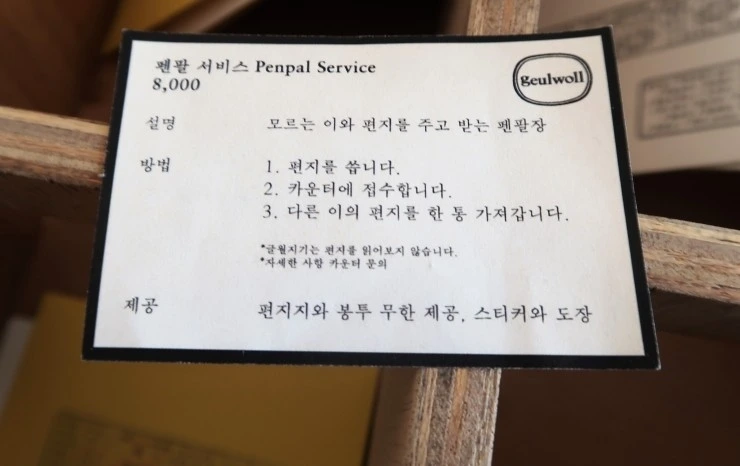 펜팔 서비스 Penpal Service
8,000
geulwoll
설명 모르는 이와 편지를 주고 받는 펜팔장
방법 1. 편지를 씁니다.
2. 카운터에 접수합니다.
3. 다른 이의 편지를 한 통 가져갑니다.
*글월지기는 편지를 읽어보지 않습니다.
*자세한 사항 카운터 문의
제공 편지지와 봉투 무한 제공, 스티커와 도장